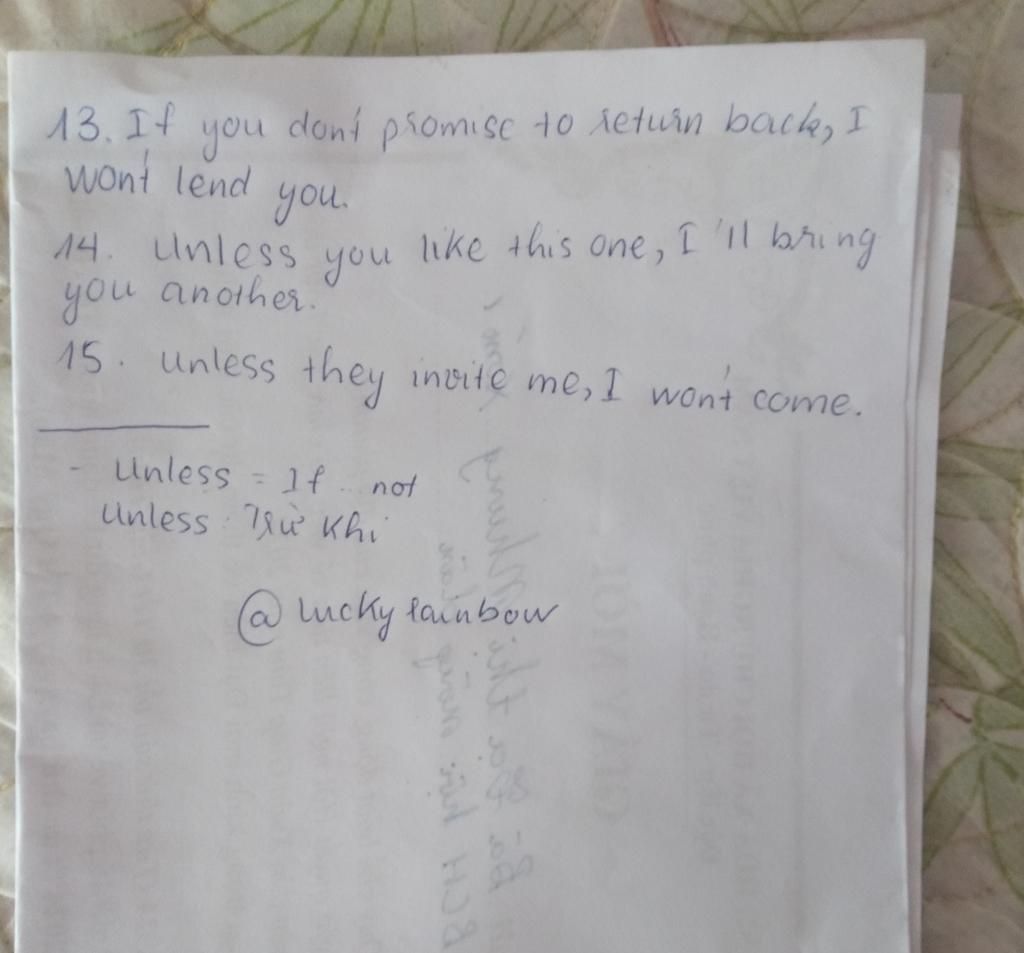 13. If you don't promise to return back, I
won't lend you.
14. Unless you like this one, I'll bring
you another.
15. Unless they invite me, I won't come.
- Unless = If .. not
Unless : Trừ khi
@luckyrainbow